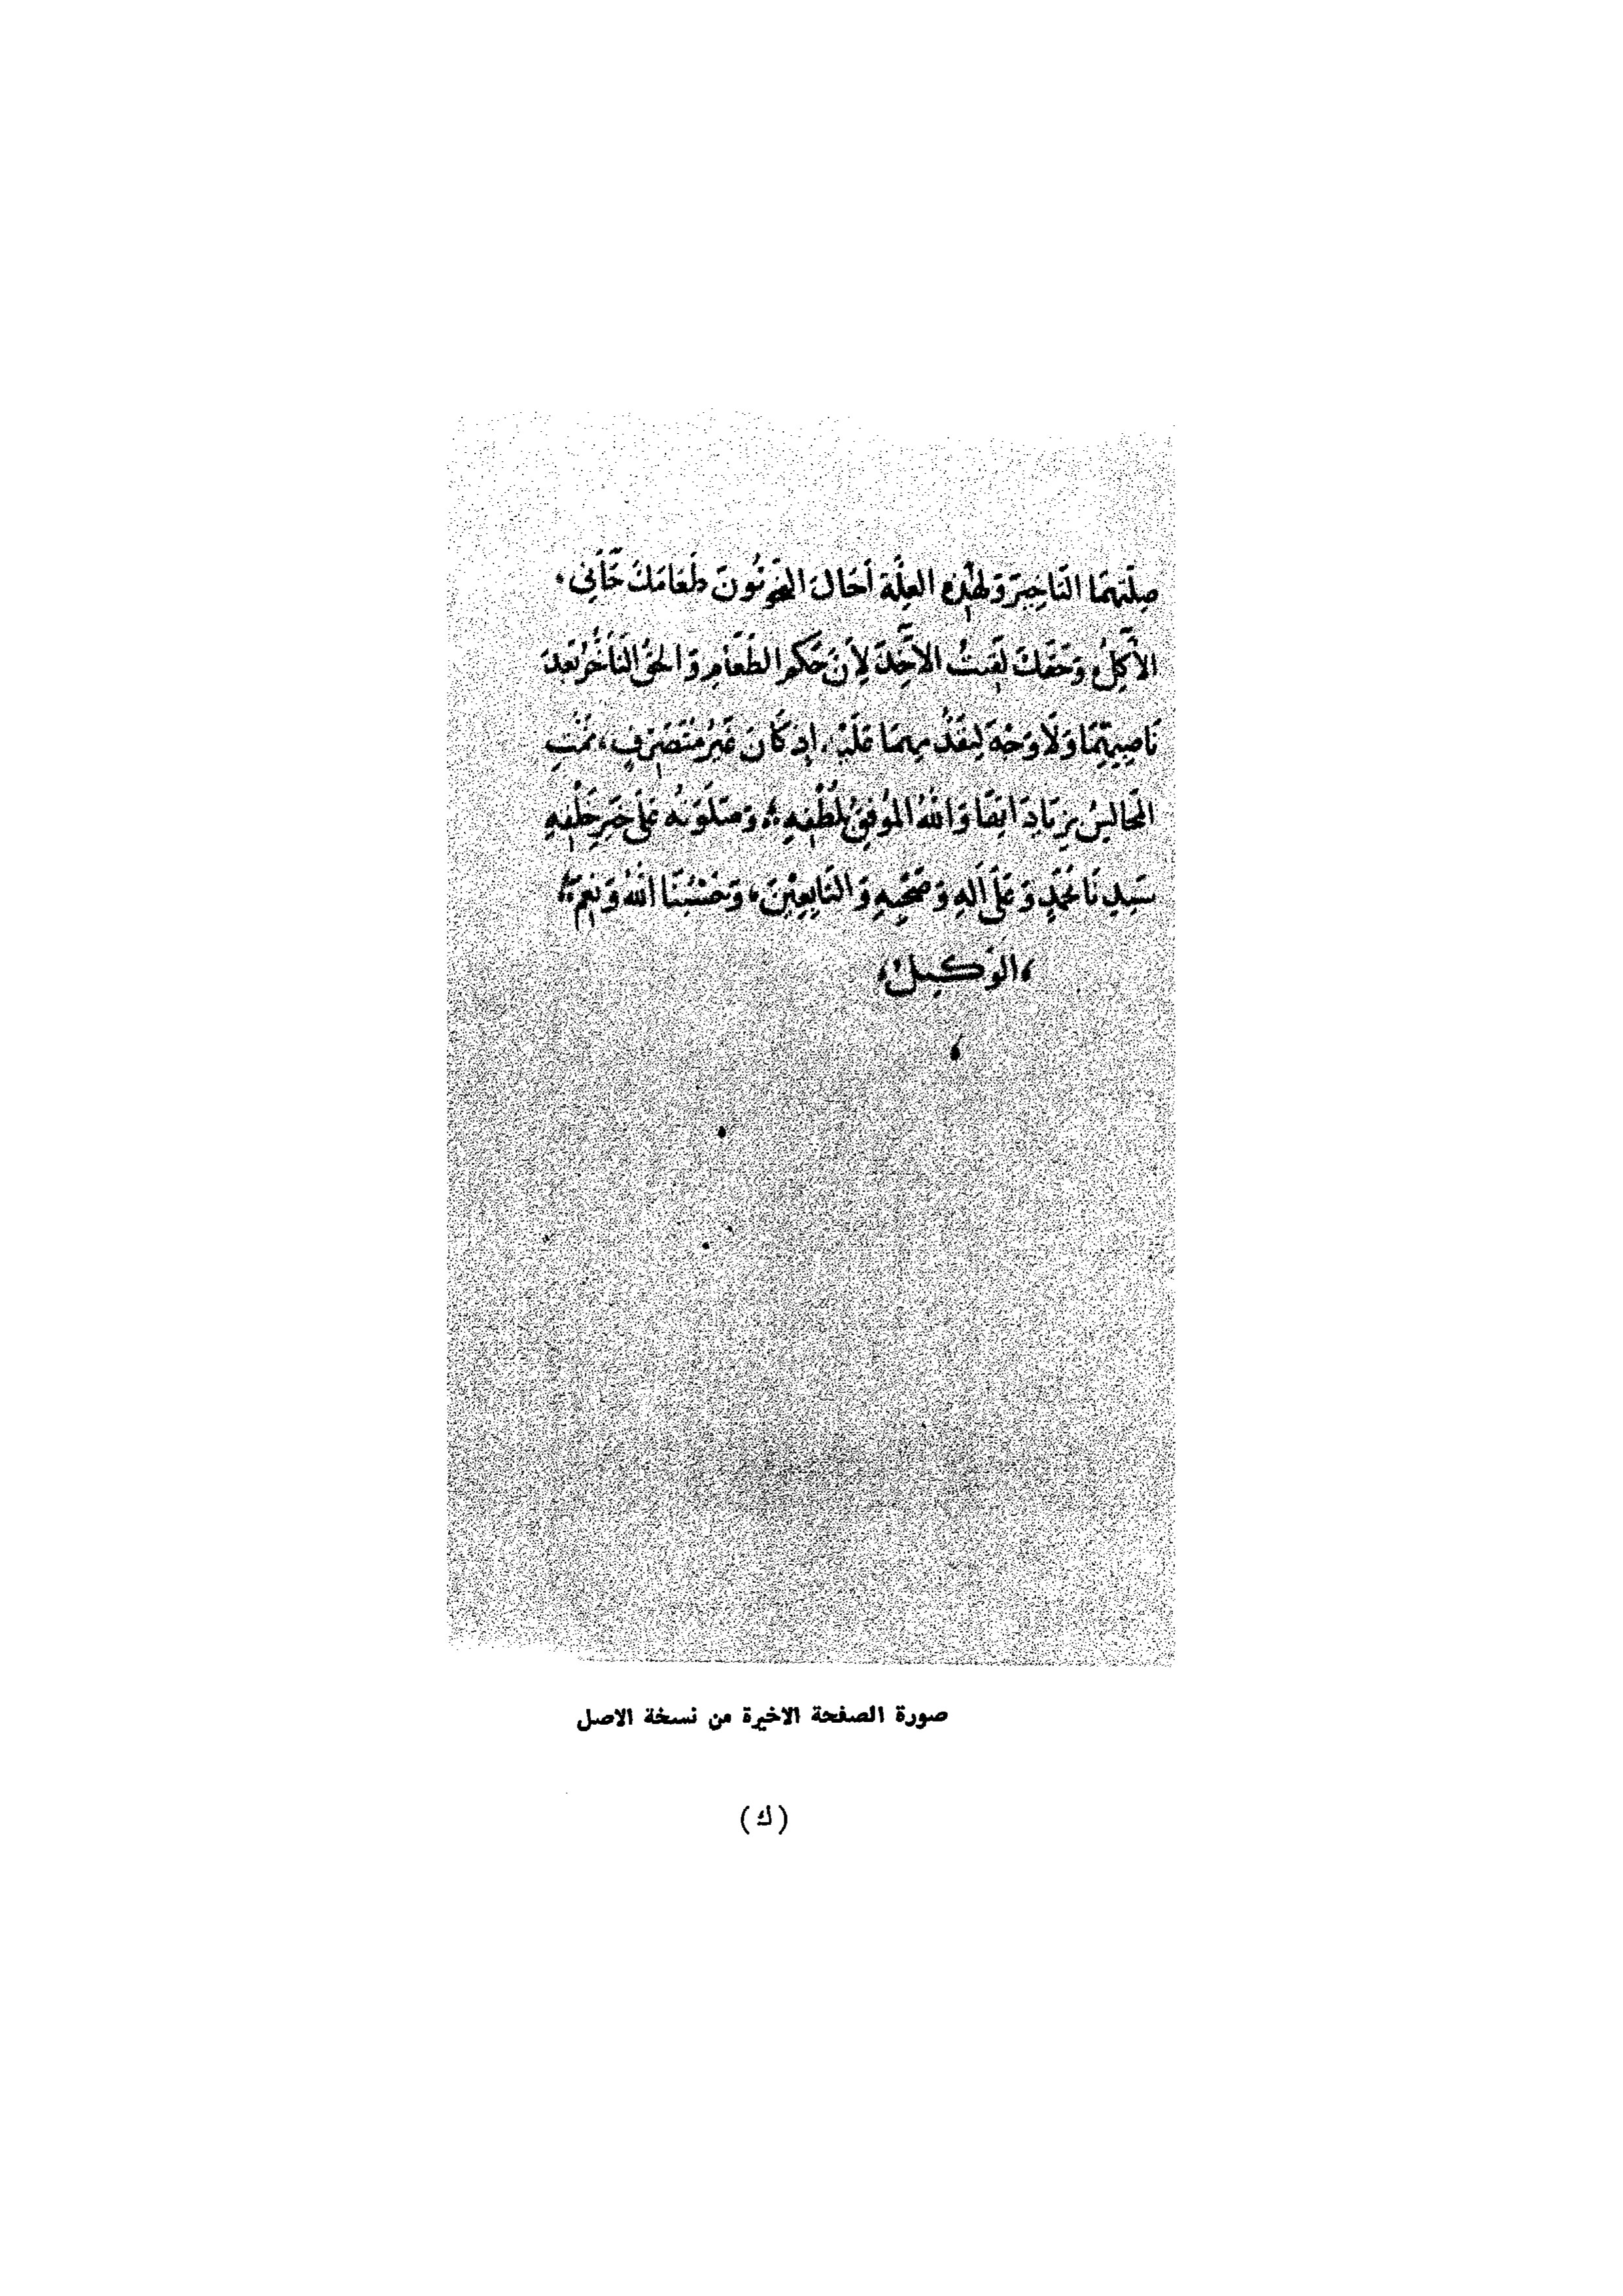 صِلَتِهِمَا التَّأخِيرَ وَلِهٰذِهِ العِلَّةِ أَحَالَ النَّحْوِيُّونَ طَعَامَكَ جَاءَنِى
الآكِلُ وَحَقَّكَ لَقِيتُ الآخِذَ لِأَنَّ حُكْمَ الطَّعَامِ وَالحَقِّ التَّأَخُّرُ بَعْدَ
نَاصِبِهِمَا وَلَا وَجْهَ لِتَقَدُّمِهِمَا عَلَيْهِ، إِذ كَانَ غَيْرَ مُتَصَرِّفٍ، تَمَّتِ
المَجَالِسُ بِزِيَادَاتِهَا وَاللهُ المُوَفِّقُ بِلُطْفِهِ، وَصَلَوٰتُهُ عَلَى خَيْرِ خَلْقِهِ
سَيِّدِنَا مُحَمَّدٍ وَعَلَى آلِهِ وَصَحْبِهِ وَالتَّابِعِيْنَ، وَحَسْبُنَا اللهُ وَنِعْمَ
الوَكِيلُ
صورة الصفحة الاخيرة من نسخة الاصل
(ك)